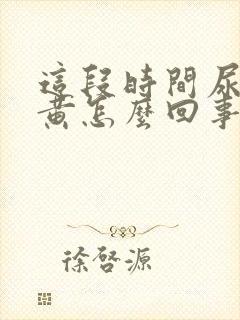 這段時間尿
黃怎麼回事
徐啓源